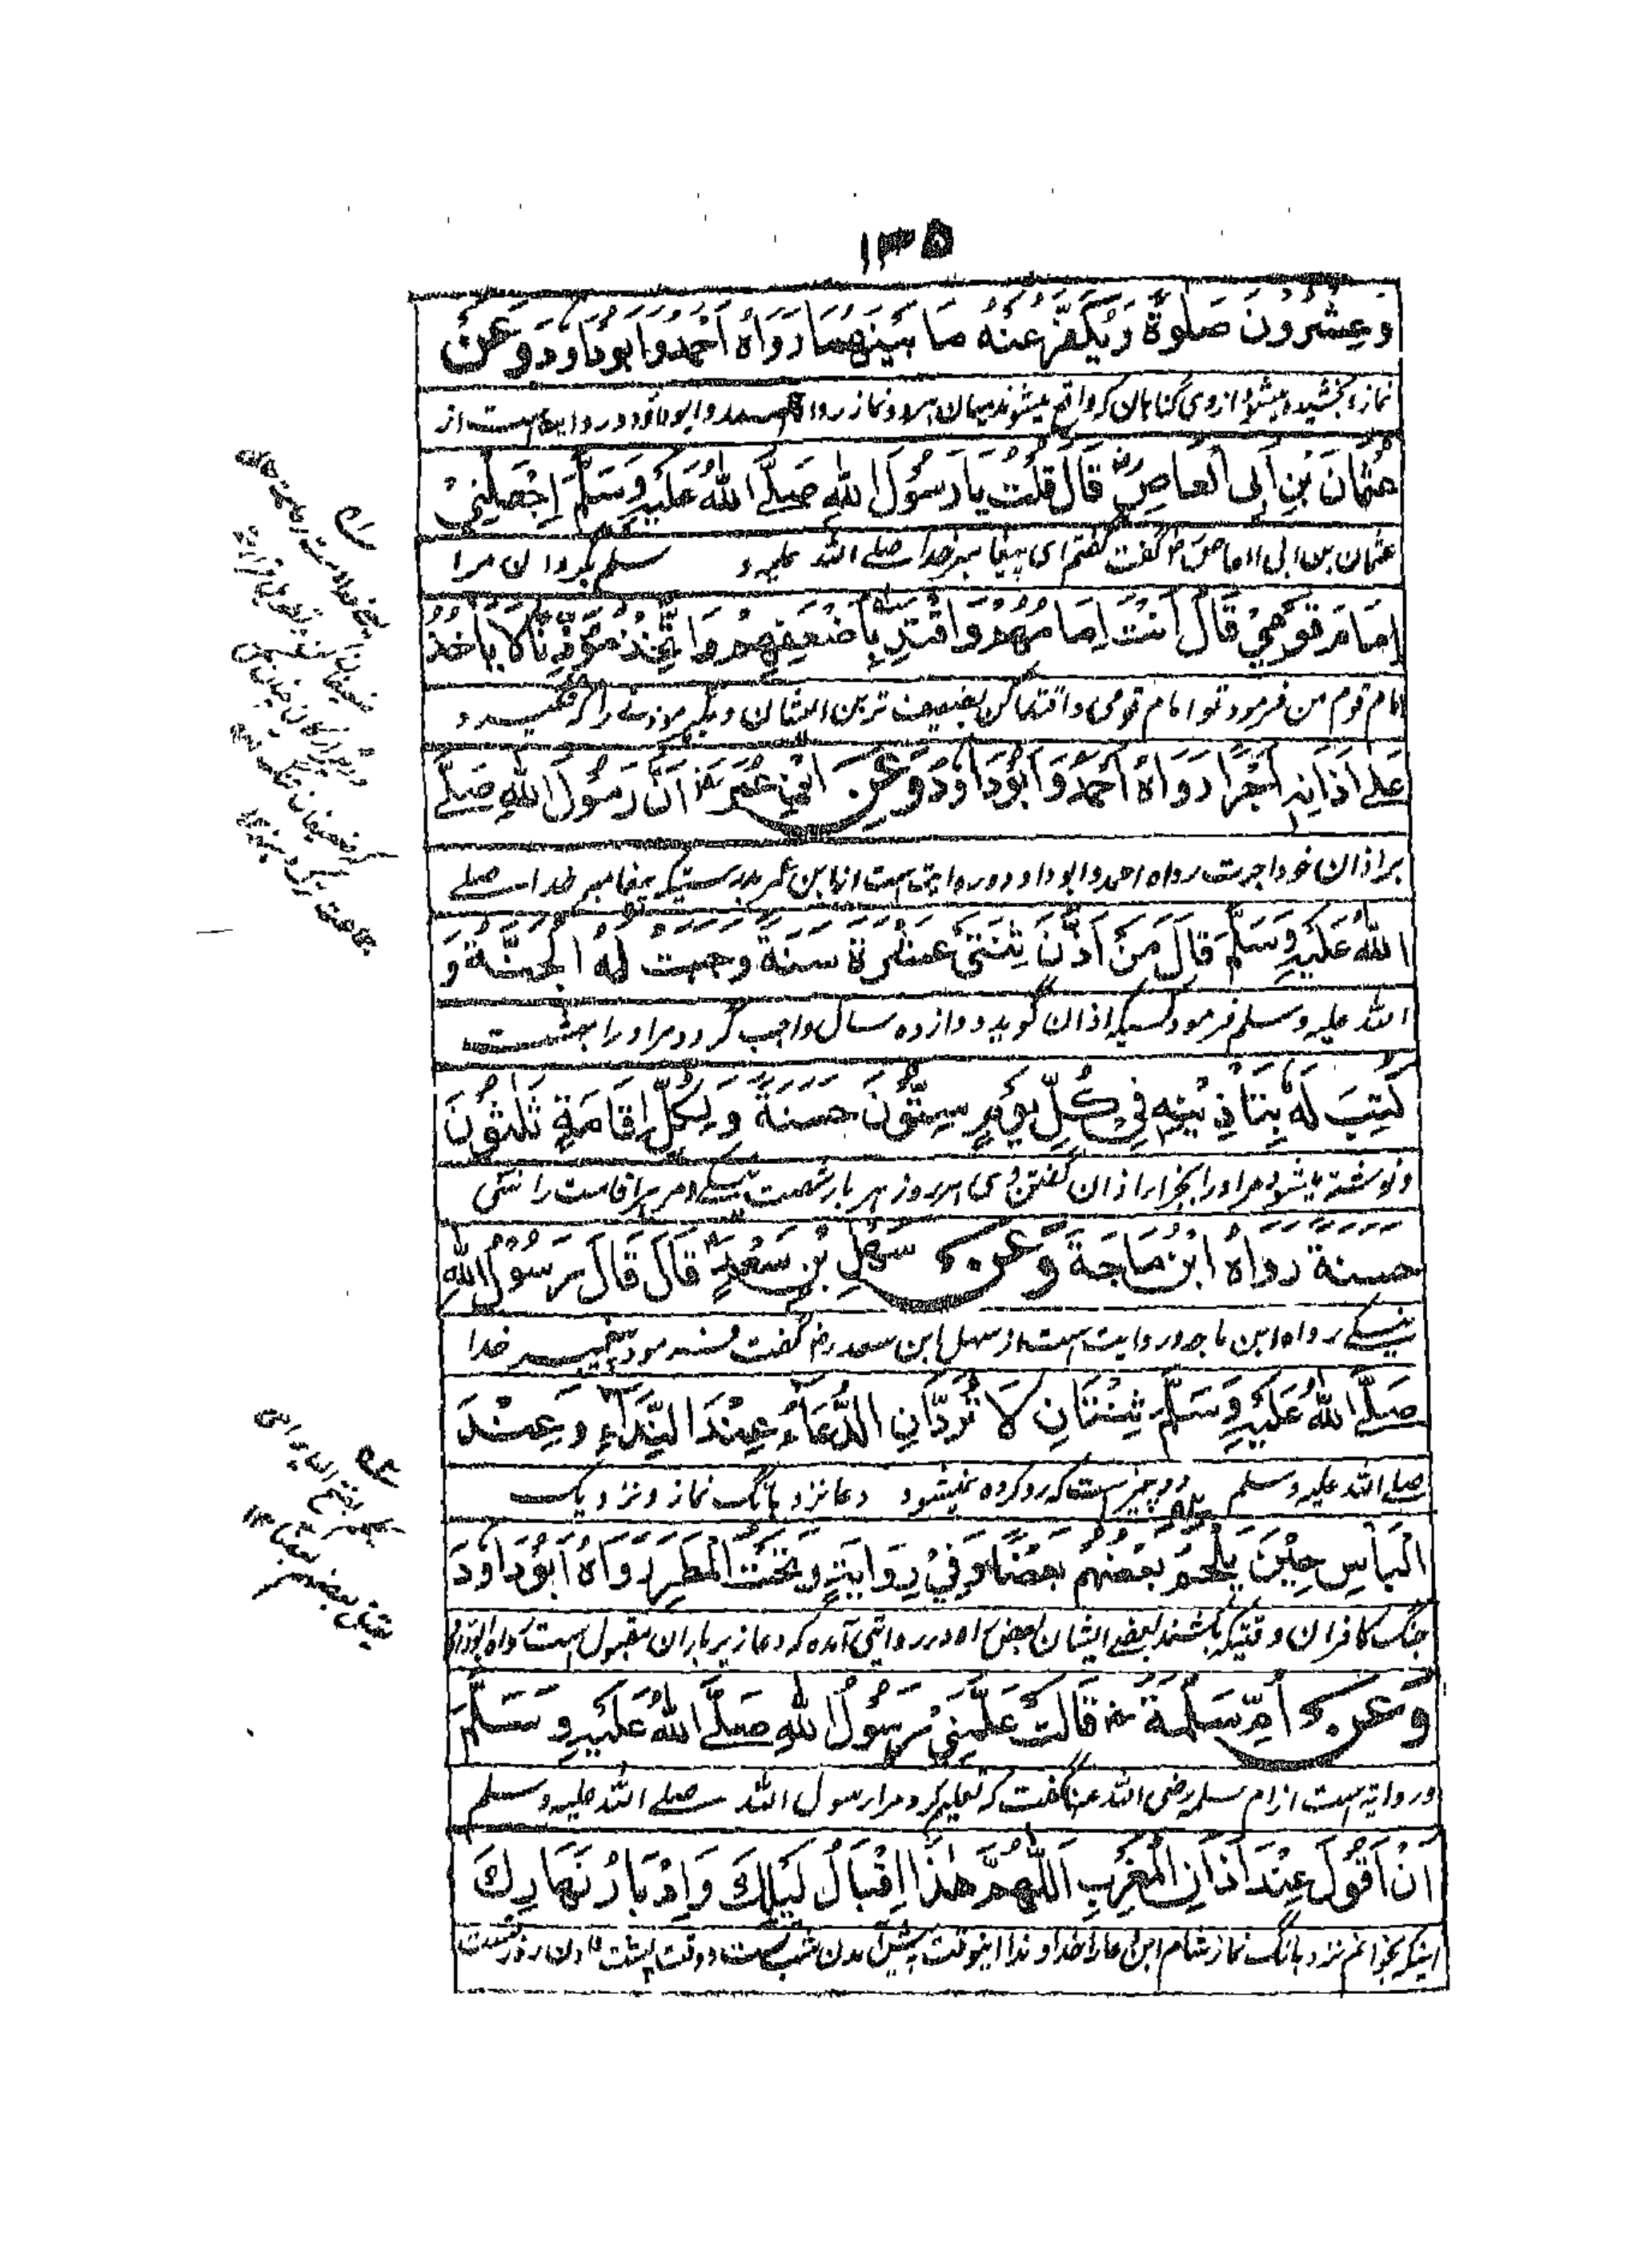 ١٣٥
وَعِشْرُونَ صَلٰوةً وَيُكَفَّرُ عَنْهُ مَا بَيْنَهُمَا رَوَاهُ أَحْمَدُ وَأَبُودَاوُدَ وَعَنْ
نماز و بخشیده میشود از وی گناهان که واقع میشوند میان هر دو نماز رواه احمد و ابوداود و روایت است از
عُثْمَانَ بْنِ أَبِى الْعَاصِ رض قَالَ قُلْتُ يَا رَسُوْلَ اللهِ صَلَّے اللهُ عَلَيْهِ وَسَلَّمَ اِجْعَلْنِیْ
عثمان بن ابی العاص رض گفت گفتم ای پیغامبر خدا صلے اللہ علیہ و سلم بگردان مرا
اِمَامَ قَوْمِیْ قَالَ أَنْتَ اِمَامُهُمْ وَاقْتَدِ بِأَضْعَفِهِمْ وَاتَّخِذْ مُؤَذِّنًا لَا يَأْخُذُ
امام قوم من فرمود تو امام قومی و اقتدا کن بضعیف ترین ایشان و بگیر موذنے را که نگیرد
عَلٰے أَذَانِهِ أَجْرًا رَوَاهُ أَحْمَدُ وَأَبُوْدَاوُدَ وَعَنْ ابْنِ عُمَرَ رض أَنَّ رَسُوْلَ اللهِ صَلَّے
بر اذان خود اجرت رواه احمد و ابوداود و روایت است از ابن عمر بدرستیکه پیغامبر خدا صلے
اللهُ عَلَيْهِ وَسَلَّمَ قَالَ مَنْ أَذَّنَ ثِنْتَیْ عَشْرَةَ سَنَةً وَجَبَتْ لَهُ الْجَنَّةُ وَ
اللہ علیہ وسلم فرمود کسیکه اذان گوید دوازده سال واجب گردد مر او را بهشت
كُتِبَ لَهُ بِتَاذِيْنِهِ فِیْ كُلِّ يَوْمٍ سِتُّوْنَ حَسَنَةً وَلِكُلِّ اِقَامَةٍ ثَلٰثُوْنَ
و نوشته میشود مر او را بجزای اذان گفتن وی هر روز هر بار شصت نیکے و مر هر اقامت را سی
حَسَنَةً رَوَاهُ ابْنُ مَاجَةَ وَعَنْ سَهْلِ بْنِ سَعْدٍ رض قَالَ قَالَ رَسُوْلُ اللهِ
نیکے رواه ابن ماجه و روایت است از سهل ابن سعد رض گفت فرمود پیغمبر خدا
صَلَّے اللهُ عَلَيْهِ وَسَلَّمَ ثِنْتَانِ لَا تُرَدَّانِ الدُّعَاءُ عِنْدَ النِّدَاءِ وَعِنْدَ
صلے اللہ علیہ وسلم دو چیز است که رد کرده نمیشود دعا نزد بانگ نماز و نزدیک
الْبَأْسِ حِيْنَ يُلْحِمُ بَعْضُهُمْ بَعْضًا وَفِیْ رِوَايَةٍ وَتَحْتَ الْمَطَرِ رَوَاهُ أَبُوْدَاوُدَ
جنگ کافران وقتیکه بکشند بعضے ایشان بعض را و در روایتی آمده که دعا زیر باران مقبول است رواه ابوداود
وَعَنْ أُمِّ سَلَمَةَ رض قَالَتْ عَلَّمَنِیْ رَسُوْلُ اللهِ صَلَّے اللهُ عَلَيْهِ وَسَلَّمَ
و روایت است از ام سلمه رضی اللہ عنها گفت که تعلیم کرد مرا رسول اللہ صلے اللہ علیہ وسلم
أَنْ أَقُوْلَ عِنْدَ أَذَانِ الْمَغْرِبِ اَللّٰهُمَّ هٰذَا اِقْبَالُ لَيْلِكَ وَاِدْبَارُ نَهَارِكَ
اینکه بخوانم نزد بانگ نماز شام این دعا را خداوندا اینوقت پیش آمدن شب است و وقت پشت دادن روز تست